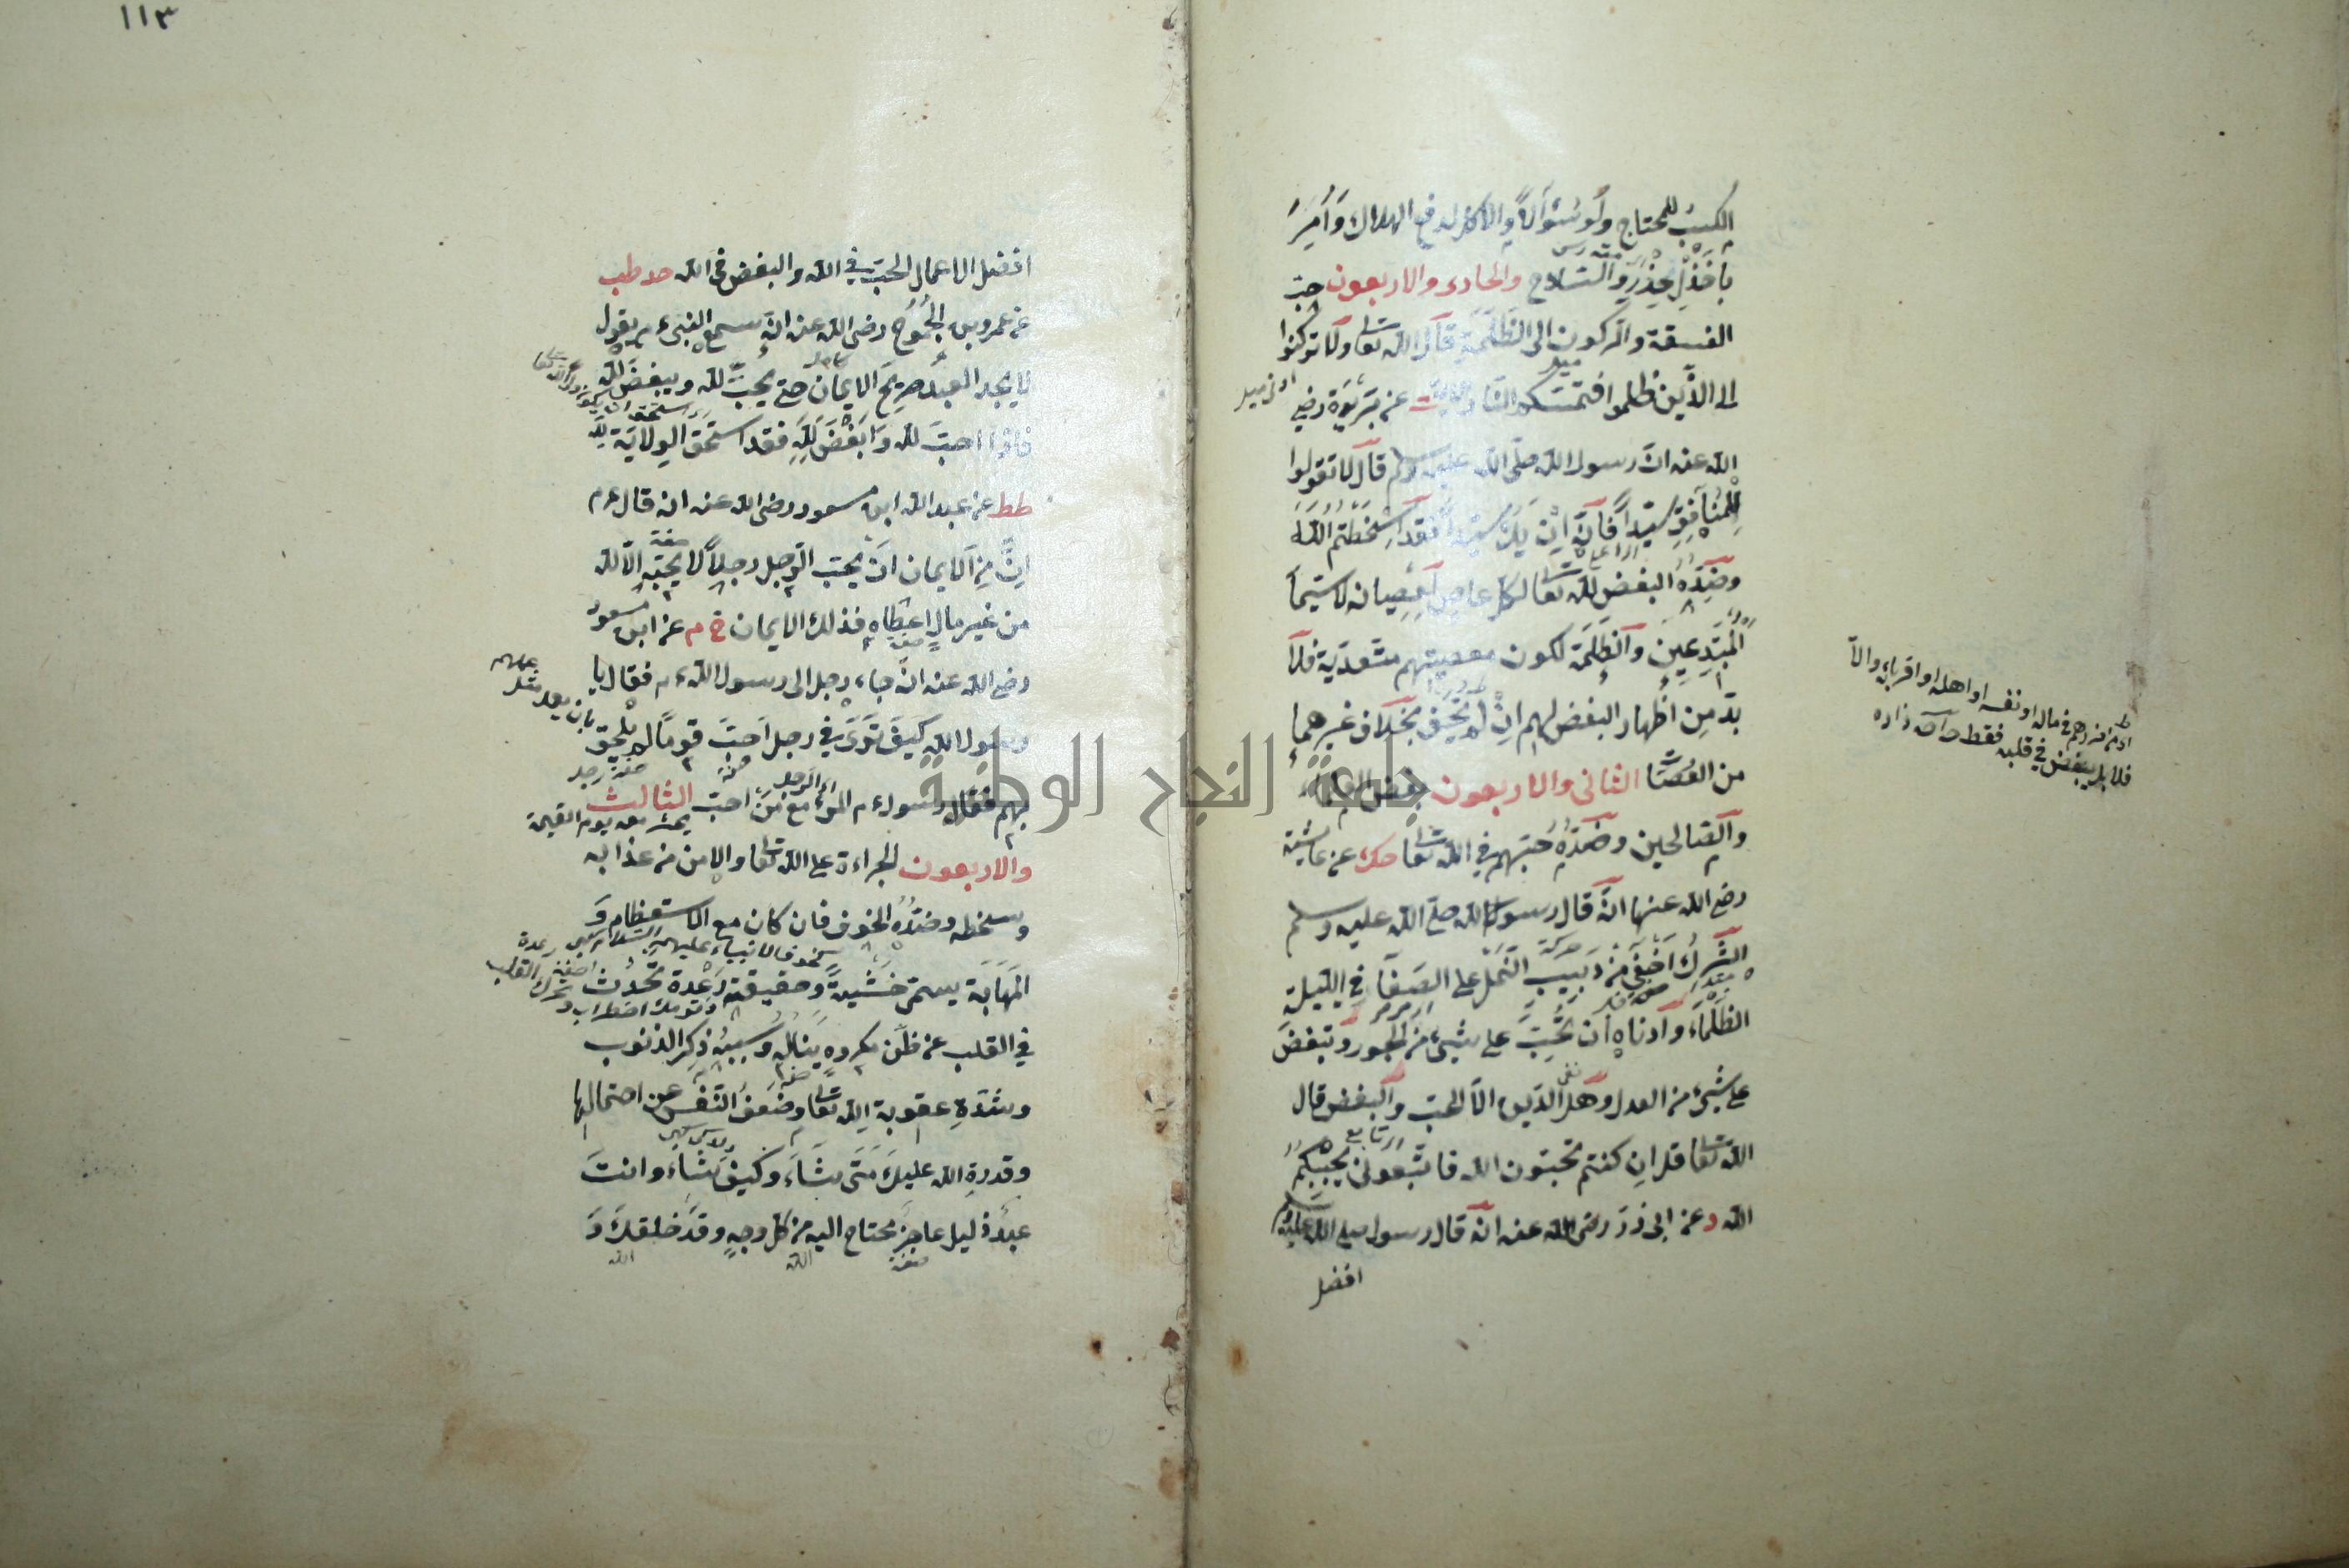 الكسب للمحتاج ولو سئوالاً والاكل لدفع الهلاك وامر
باخذ الحذر والسلاح والحادى والاربعون حب
الفسقة والركون الى الظلمة قال الله تعا ولا تركنوا
الى الذين ظلموا فتمسكم النار عن بريدة رضى
الله عنه ان رسول الله صلى الله عليه وسلم قال لا تقولوا
للمنافق سيّداً فانه ان يك سيّداً فقد اسخطتم الله
وضدّه البغض لله تعا لكل عاص لعصيانه لا سيّما
المبتدعين والظلمة لكون معصيتهم متعدّية فلا
بدّ من اظهار البغض لهم ان لم يخف بخلاف غيرهما
من العصاة الثانى والاربعون بغض العلماء
والصالحين وضدّه حبّهم فى الله تعا حك عن عايشة
رضى الله عنها انه قال رسول الله صلى الله عليه وسلم
الشرك اخفى من دبيب النمل على الصفا فى الليلة
الظلماء وادناه ان تحبّ على شىء من الجور وتبغض
على شىء من العدل وهل الدين الّا الحب والبغض قال
الله تعا قل ان كنتم تحبّون الله فاتّبعونى يحببكم
الله د عن ابى ذر رضى الله عنه انّه قال رسول صلى الله عليه وسلم
افضل
فلا بل يبغض فى قلبه فقط
١١٣
افضل الاعمال الحبّ فى الله والبغض فى الله حد طب
عن عمرو بن الجموح رضى الله عنه انّه سمع النبىء م يقول
لا يجد العبد صريح الايمان حتى يحبّ لله ويبغض لله
فاذا احبّ لله وابغض لله فقد استحق الولاية لله
طط عن عبد الله ابن مسعود رضى الله عنه انه قال ء م
انّ من الايمان ان يحبّ الرجل رجلاً لا يحبّه الّا لله
من غير مال اعطاه فذلك الايمان خ م عن ابن مسعود
رضى الله عنه انّه جاء رجل الى رسول الله ء م فقال يا
رسول الله كيف ترى فى رجل احبّ قوماً لم يلحق
بهم فقال رسول ء م المرء مع من احبّ الثالث
والاربعون الجراءة على الله تعا والامن من عذابه
وسخطه وضدّه الخوف فان كان مع الاستعظام و
المهابة يسمّى خشية وحقيقته رعدة تحدث
فى القلب عن ظنّ مكروه يناله وسببه ذكر الذنوب
وشدّة عقوبة الله تعا وضعف النفس عن احتمالها
وقدرة الله عليك متى شاء وكيف شاء وانت
عبد ذليل عاجز محتاج اليه من كل وجه وقد خلقك و
جامعة النجاح الوطنية